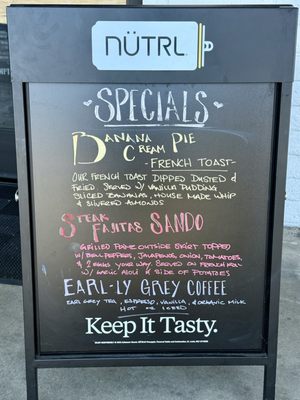 NÜTRL
SPECIALS
BANANA PIE
CREAM
-FRENCH TOAST-
OUR FRENCH TOAST DIPPED DUSTED &
FRIED SERVED W/ VANILLA PUDDING
SLICED BANANAS, HOUSE MADE WHIP
& SLIVERED ALMONDS
STEAK
FAJITAS SANDO
GRILLED OUTSIDE SKIRT TOPPED
W/ BELL PEPPERS, JALAPENOS, ONION, TOMATOES,
& 2 EGGS YOUR WAY. SERVED ON FRENCH
W/ GARLIC AIOLI & SIDE OF POTATOES
EARL-LY GREY COFFEE
EARL GREY TEA, ESPRESSO, VANILLA, & ORGANIC MILK
HOT OR ICED
Keep It Tasty.